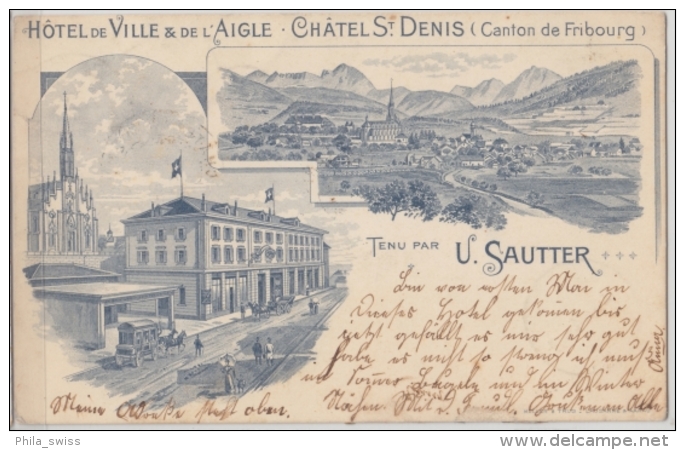 HÔTEL DE VILLE & DE L'AIGLE · CHÂTEL ST DENIS (Canton de Fribourg)
TENU PAR U. SAUTTER
Bin von ersten Mai in
dieses Hotel gekommen bis
jetzt gefällt es mir sehr gut
habe es nicht so streng ich muß
im Sommer und im Winter
Nähen. Mit d. an Alle
Meine Adresse steht oben.
Phila_swiss
delcampe.net